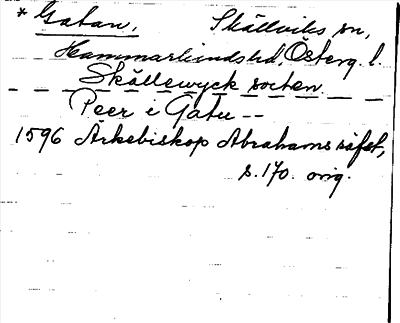 * Gatan. Skällviks sn,
Hammarkinds hd, Österg. l.
Skällewyck socken.
Peer i Gatu --
1596 Ärkebiskop Abrahams räfst,
s. 170. orig.